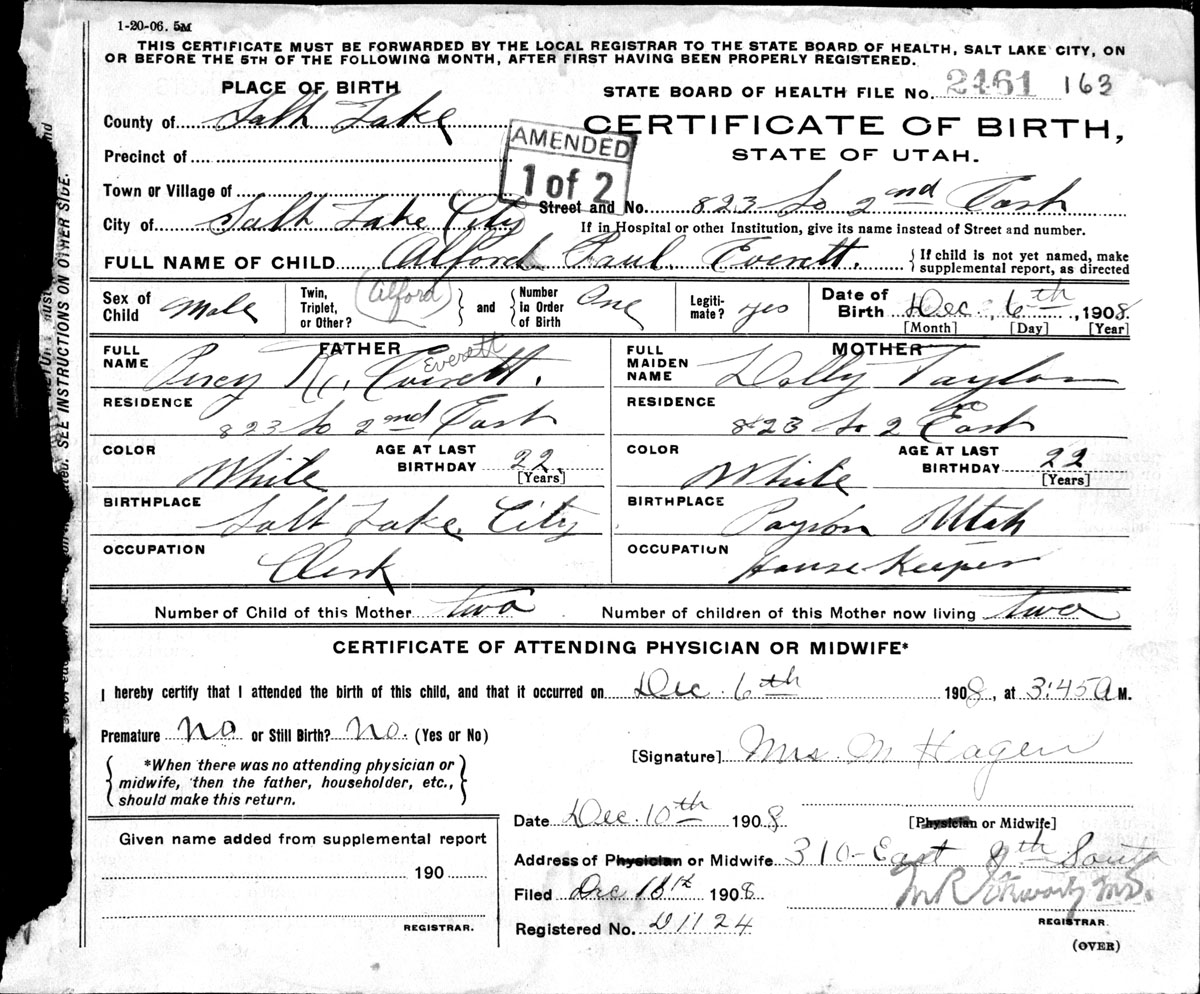 1-20-06. 5M
THIS CERTIFICATE MUST BE FORWARDED BY THE LOCAL REGISTRAR TO THE STATE BOARD OF HEALTH, SALT LAKE CITY, ON
OR BEFORE THE 5TH OF THE FOLLOWING MONTH, AFTER FIRST HAVING BEEN PROPERLY REGISTERED.
PLACE OF BIRTH
STATE BOARD OF HEALTH FILE No. 2461 163
County of Salt Lake
CERTIFICATE OF BIRTH,
AMENDED
1 of 2
Precinct of
STATE OF UTAH.
Town or Village of
Street and No. 823 So 2nd East
City of Salt Lake City
If in Hospital or other Institution, give its name instead of Street and number.
FULL NAME OF CHILD Alford Paul Everett. { If child is not yet named, make supplemental report, as directed
Sex of Child Male
Twin, Triplet, or Other? (Alford) } and { Number in Order of Birth One
Legitimate? yes
Date of Birth Dec. 6th, 1908
[Month] [Day] [Year]
FATHER
FULL NAME Percy R. Everett. Everett
MOTHER
FULL MAIDEN NAME Dolly Taylor
RESIDENCE 823 So 2nd East
RESIDENCE 823 So 2 East
COLOR White AGE AT LAST BIRTHDAY 22. [Years]
COLOR White AGE AT LAST BIRTHDAY 22 [Years]
BIRTHPLACE Salt Lake City
BIRTHPLACE Payson Utah
OCCUPATION Clerk
OCCUPATION House Keeper
Number of Child of this Mother two Number of children of this Mother now living two
CERTIFICATE OF ATTENDING PHYSICIAN OR MIDWIFE*
I hereby certify that I attended the birth of this child, and that it occurred on Dec. 6th 1908, at 3:45 A M.
Premature No or Still Birth? No. (Yes or No)
[Signature] Mrs. M Hagen
*When there was no attending physician or
midwife, then the father, householder, etc.,
should make this return.
Date Dec. 10th 1908
[Physician or Midwife]
Given name added from supplemental report
190
REGISTRAR.
Address of Physician or Midwife 310 - East 8th South
Filed Dec 18th 1908
M R Stewart M.D.
REGISTRAR.
Registered No. D1124
(OVER)
SEE INSTRUCTIONS ON OTHER SIDE.